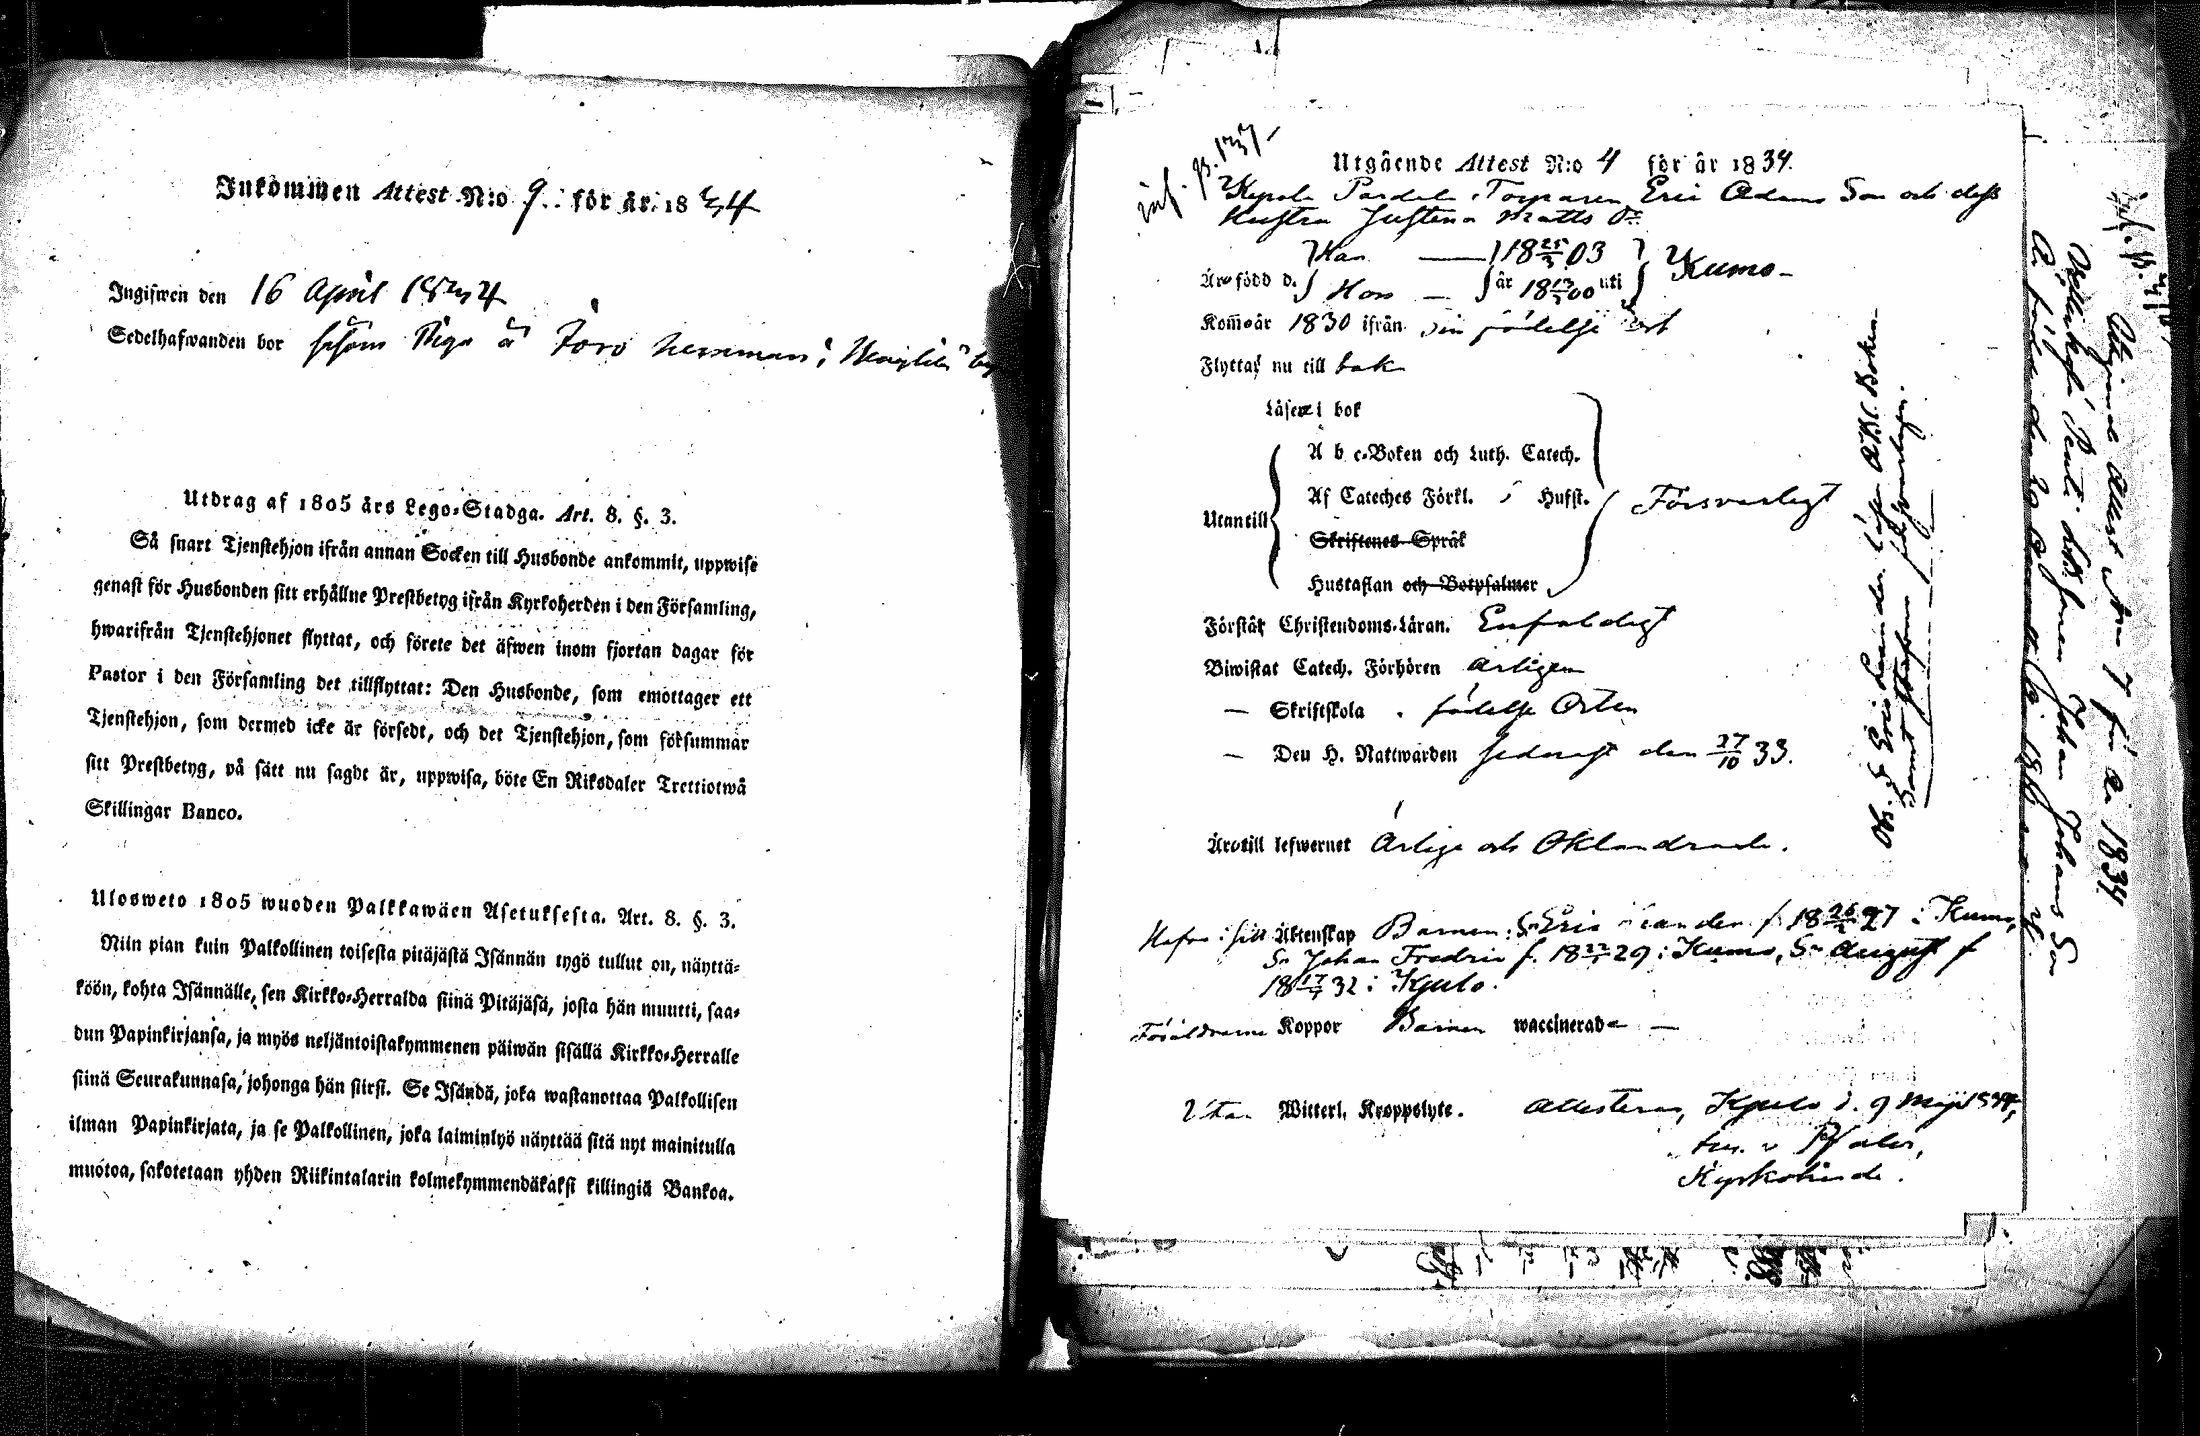 Inkommen Attest N:o 9. för år 1834
Ingifwen den 16 April 1834
Sedelhafwanden bor såsom Piga å
Utdrag af 1805 års Lego-Stadga. Art. 8. §. 3.
Så snart Tjenstehjon ifrån annan Socken till Husbonde ankommit, uppwise
genast för Husbonden sitt erhållne Prestbetyg ifrån Kyrkoherden i den Församling,
hwarifrån Tjenstehjonet flyttat, och förete det äfwen inom fjortan dagar för
Pastor i den Församling det tillflyttat: Den Husbonde, som emottager ett
Tjenstehjon, som dermed icke är försedt, och det Tjenstehjon, som försummar
sitt Prestbetyg, på sätt nu sagdt är, uppwisa, böte En Riksdaler Trettiotwå
Skillingar Banco.
Ulosweto 1805 wuoden Palkkawäen Asetuksesta. Art. 8. §. 3.
Niin pian kuin Palkollinen toisesta pitäjästä Isännän tygö tullut on, näyttä-
köön, kohta Isännälle, sen Kirkko-Herralda siinä Pitäjäsä, josta hän muutti, saa-
dun Papinkirjansa, ja myös neljäntoistakymmenen päiwän sisällä Kirkko-Herralle
siinä Seurakunnasa, johonga hän siirsi. Se Isändä, joka wastanottaa Palkollisen
ilman Papinkirjata, ja se Palkollinen, joka laiminlyö näyttää sitä nyt mainitulla
muotoa, sakotetaan yhden Riikintalarin kolmekymmendäkaksi killingiä Bankoa.
inf. p. 137
Utgående Attest N:o 4 för år 1834.
Torparen Eric Adams Son och dess
Hustru Justina Matts Dr
Han 18 25/3 03
Äro född d. Hon år 1800 uti Kumo
Kom år 1830 ifrån sin födelse ort
Flytta nu till bak
Läser i bok
A b c-Boken och Luth. Catech.
Af Cateches Förkl. i Husst. Försvarligt
Utantill
Skriftenes Språk
Hustaflan och Botpsalmer
Förstår Christendoms-Läran. Enfaldigt
Biwistat Catech. Förhören årligen
— Skriftskola födelse Orten
— Den H. Nattwarden sednast den 27/10 33.
Äro till lefwernet Ärlige och Oklandrade.
Hafva i sitt Äktenskap Barnen: Sn Eric Leander f. 1827 i Kumo,
Sn Johan Fredric f. 1829 i Kumo, Sn August f
18 17/7 32 i Kjulo.
Föräldrarne Koppor Barnen waccinerade —
Utan Witterl. Kroppslyte. Attesteras, Kjulo d. 9 Maji 1834,
Kyrkoherde.
Obs. S. Eric Leander läser ABC Boken
samt
Utgående Attest N:o 7 för år 1834
Johan Johans Son